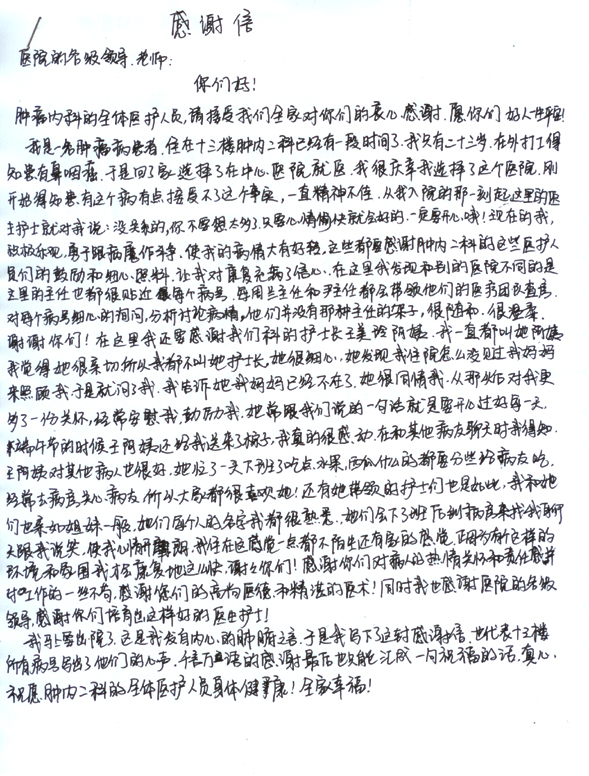 感谢信
医院的各级领导、老师:
你们好!
肿瘤内科的全体医护人员,请接受我们全家对你们的衷心感谢.愿你们好人一生平安!
我是一名肿瘤病患者,住在十三楼肿内二科已经有一段时间了.我只有二十三岁,在外打工得
知患有鼻咽癌.于是回了家选择了在中心医院就医.我很庆幸我选择了这个医院.刚
开始得知患有这个病有点接受不了这个事实,一直精神不佳.从我入院的那一刻起这里的医
生护士就对我说:没关系的,你不要想太多了只要心情愉快就会好的.一定要开心哦!现在的我,
积极乐观,勇于跟病魔作斗争.使我的病情大有好转,这些都要感谢肿内二科的这些医护人
员们的鼓励和细心照料.让我对康复充满了信心.在这里我发现和别的医院不同的是
这里的主任也都很贴近每个病号.每周兰主任和尹主任都会带领他们的医疗团队查房.
对每个病号细心的询问,分析讨论病情.他们并没有那种主任的架子,很随和.很温柔.
谢谢你们!在这里我还要感谢我们科的护士长王美玲阿姨.我一直都叫她阿姨
我觉得她很亲切所以我都不叫她护士长.她很细心.她发现我住院怎么没见过我妈妈
来照顾我.于是就问了我.我告诉她我妈妈已经不在了.她很同情我.从那以后对我更
多了一份关怀,经常安慰我,劝励我.她常跟我们说的一句话就是要开心过好每一天.
端午节的时候王阿姨还给我送来了粽子,我真的很感动.在和其他病友聊天时我得知.
王阿姨对其他病人也很好.她忙了一天下班了吃点水果,西瓜什么的都要分些给病友吃.
经常去病房关心病友.所以大家都很喜欢她!还有她带领的护士们也是如此,我和她
们也亲如姐妹一般.她们每个人的名字我都很熟悉.她们会下了班后到病房来找我聊
天跟我说笑.使我心情开朗.我住在这感觉一点都不陌生还有家的感觉.正因为有这样的
环境和氛围我才会康复地这么快.谢谢你们!感谢你们对病人的热情关怀和责任感并
对工作的一丝不苟.感谢你们的高尚医德和精湛的医术!同时我也感谢医院的各级
领导.感谢你们培育出这样好的医生护士!
我马上要出院了.这是我发自内心的肺腑之言.于是我写下了这封感谢信.也代表十三楼
所有病号写出了他们的心声.千言万语的感谢最后也只能汇成一句祝福的话.真心
祝愿肿内二科的全体医护人员身体健康!全家幸福!